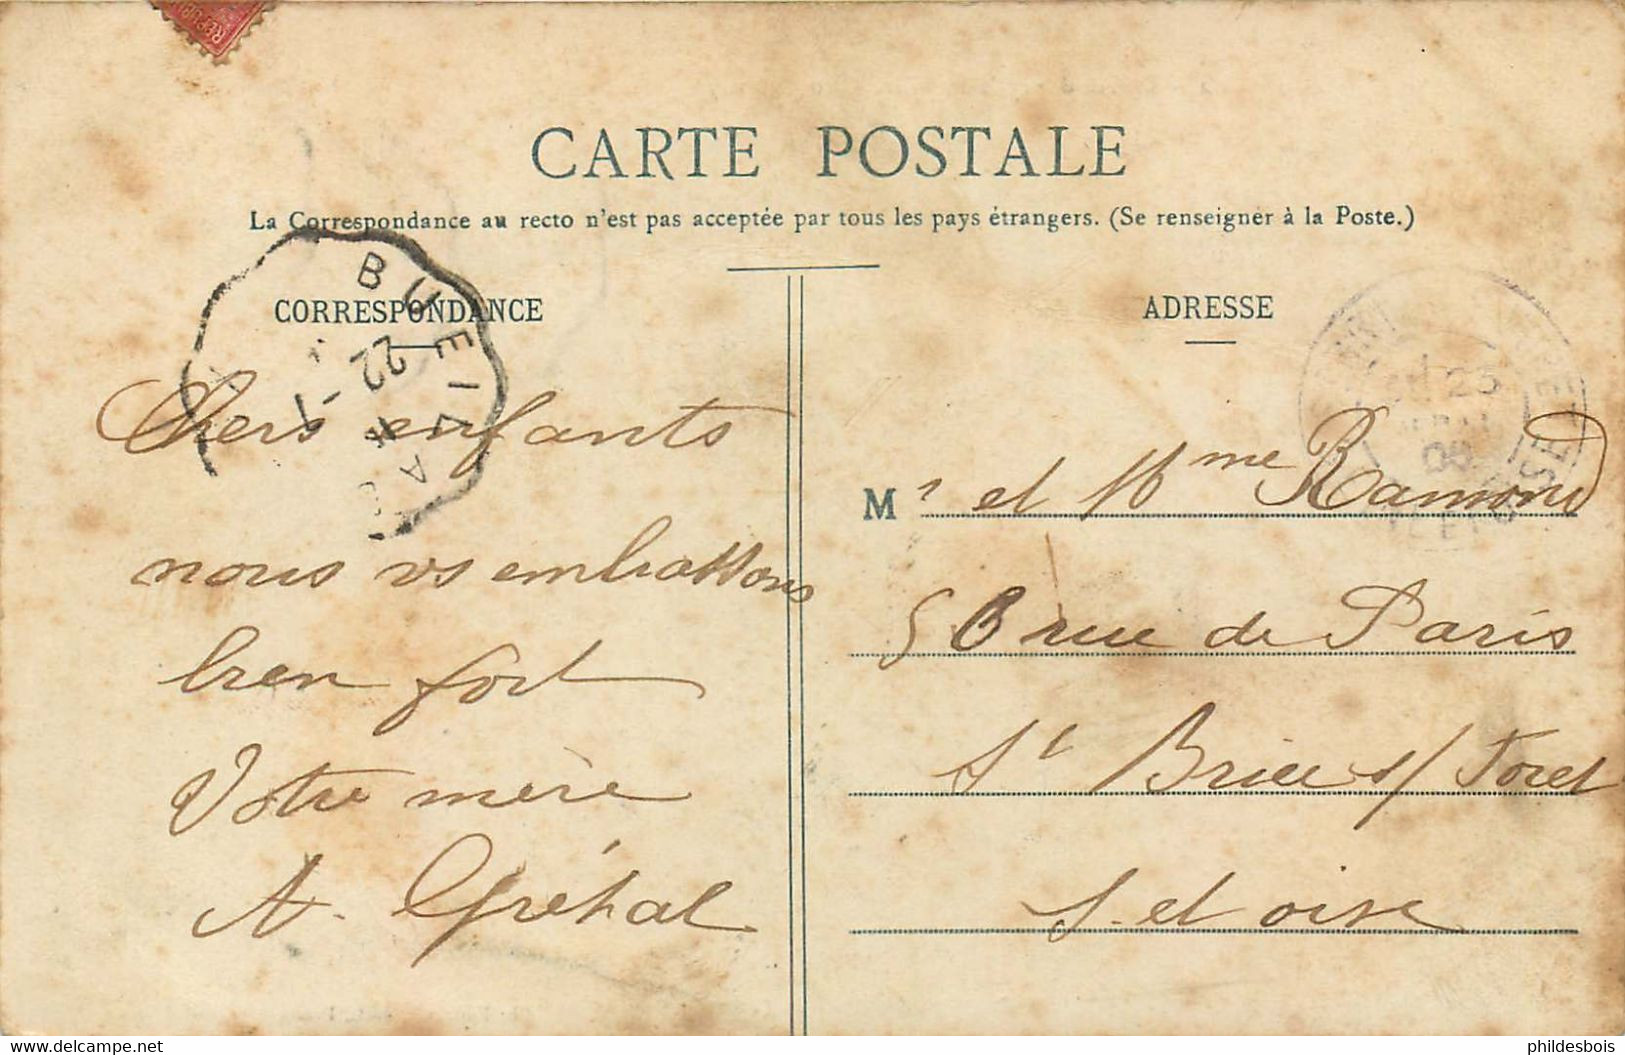 CARTE POSTALE
La Correspondance au recto n'est pas acceptée par tous les pays étrangers. (Se renseigner à la Poste.)
CORRESPONDANCE
Chers enfants
nous vs embrassons
bien fort
Votre mère
A. Gréhal
ADRESSE
Mr et Mme Ramond
50 rue de Paris
St Brice s/ Foret
S. et oise
BUEIL A
22 - 7
delcampe.net
phildesbois